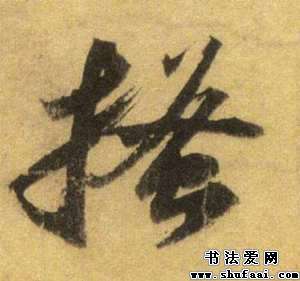 搔
书法爱网
www.shufaai.com